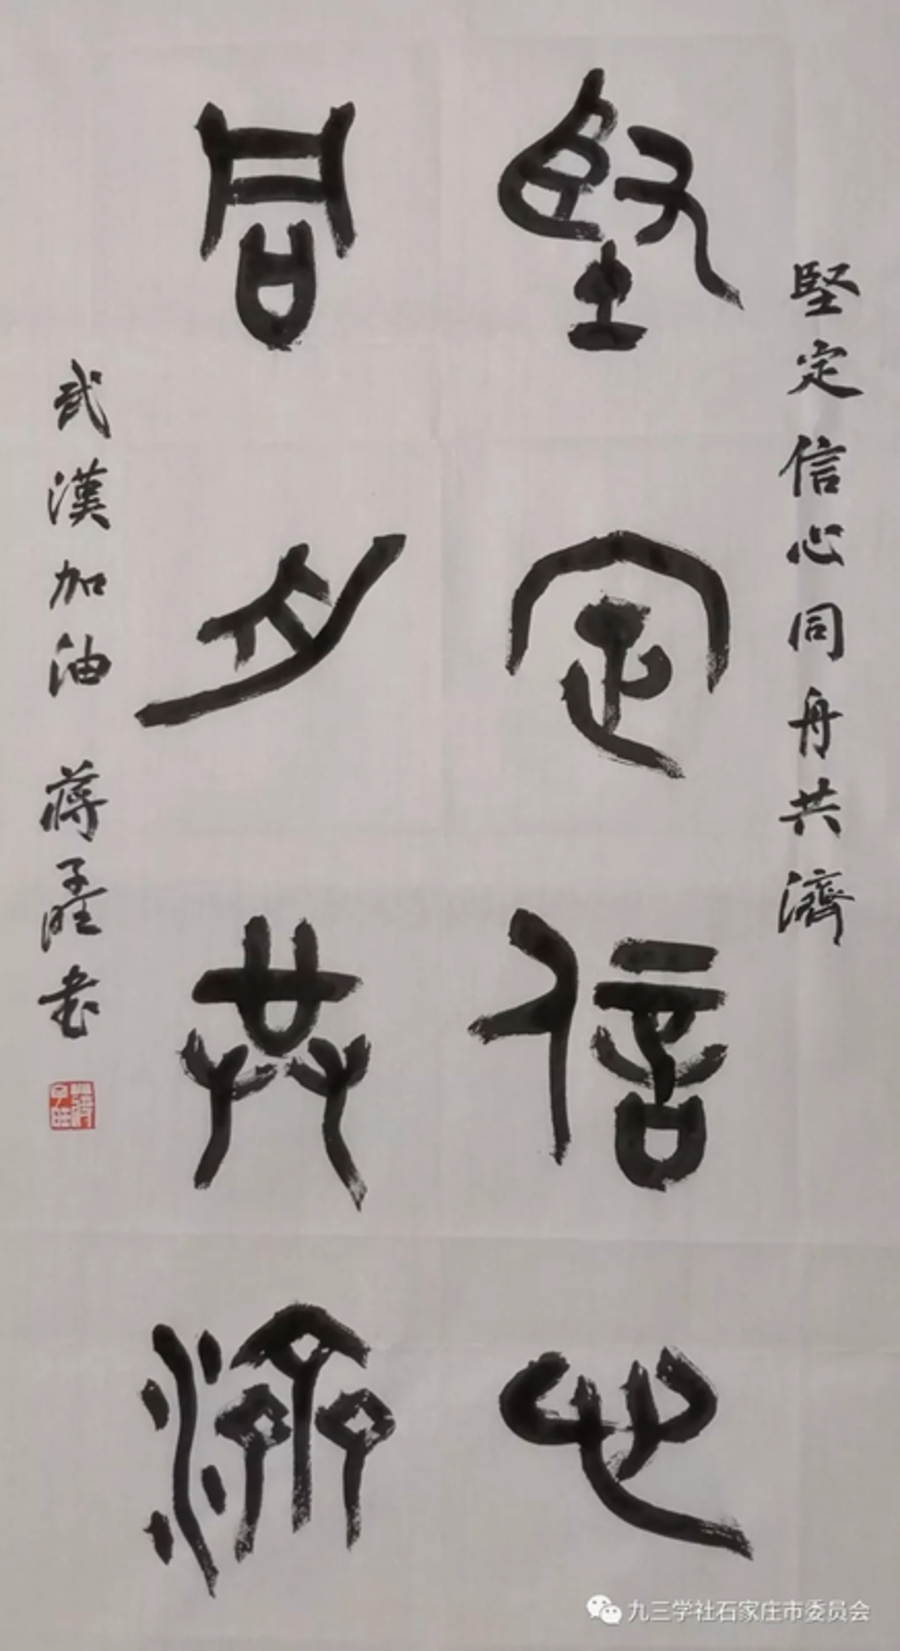 堅定信心同舟共濟
堅定信心
同舟共濟
武漢加油 蔣子旺书
蔣子旺
九三学社石家庄市委员会